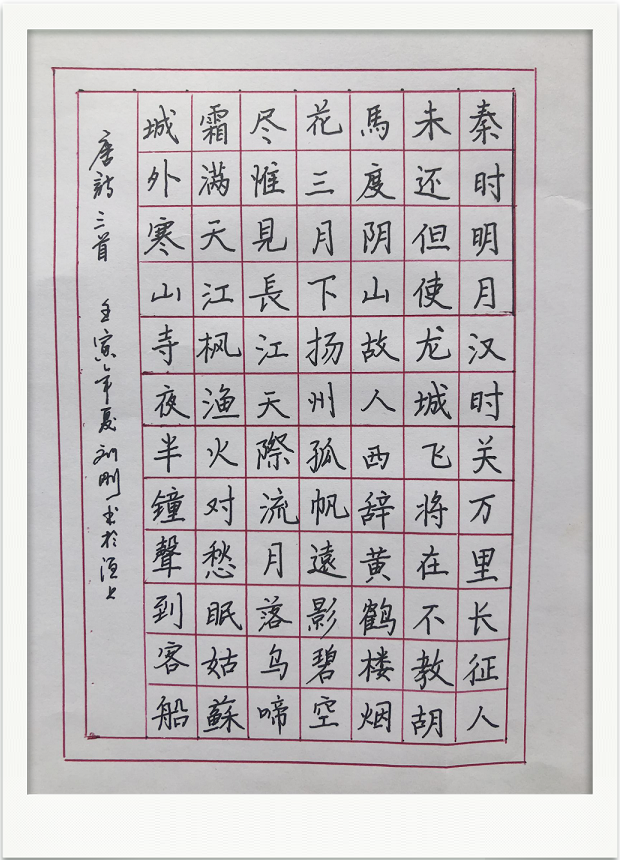 秦时明月汉时关万里长征人
未还但使龙城飞将在不教胡
馬度阴山故人西辞黄鹤楼烟
花三月下扬州孤帆遠影碧空
尽惟見長江天際流月落乌啼
霜满天江枫渔火对愁眠姑蘇
城外寒山寺夜半鐘聲到客船
唐詩三首 壬寅年夏刘刚书於上